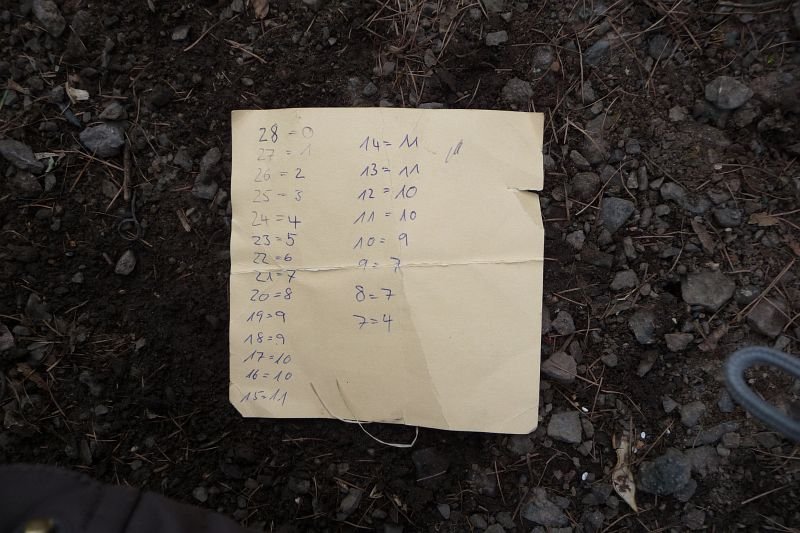 28 = 0
27 = 1
26 = 2
25 = 3
24 = 4
23 = 5
22 = 6
21 = 7
20 = 8
19 = 9
18 = 9
17 = 10
16 = 10
15 = 11
14 = 11
13 = 11
12 = 10
11 = 10
10 = 9
9 = 7
8 = 7
7 = 4